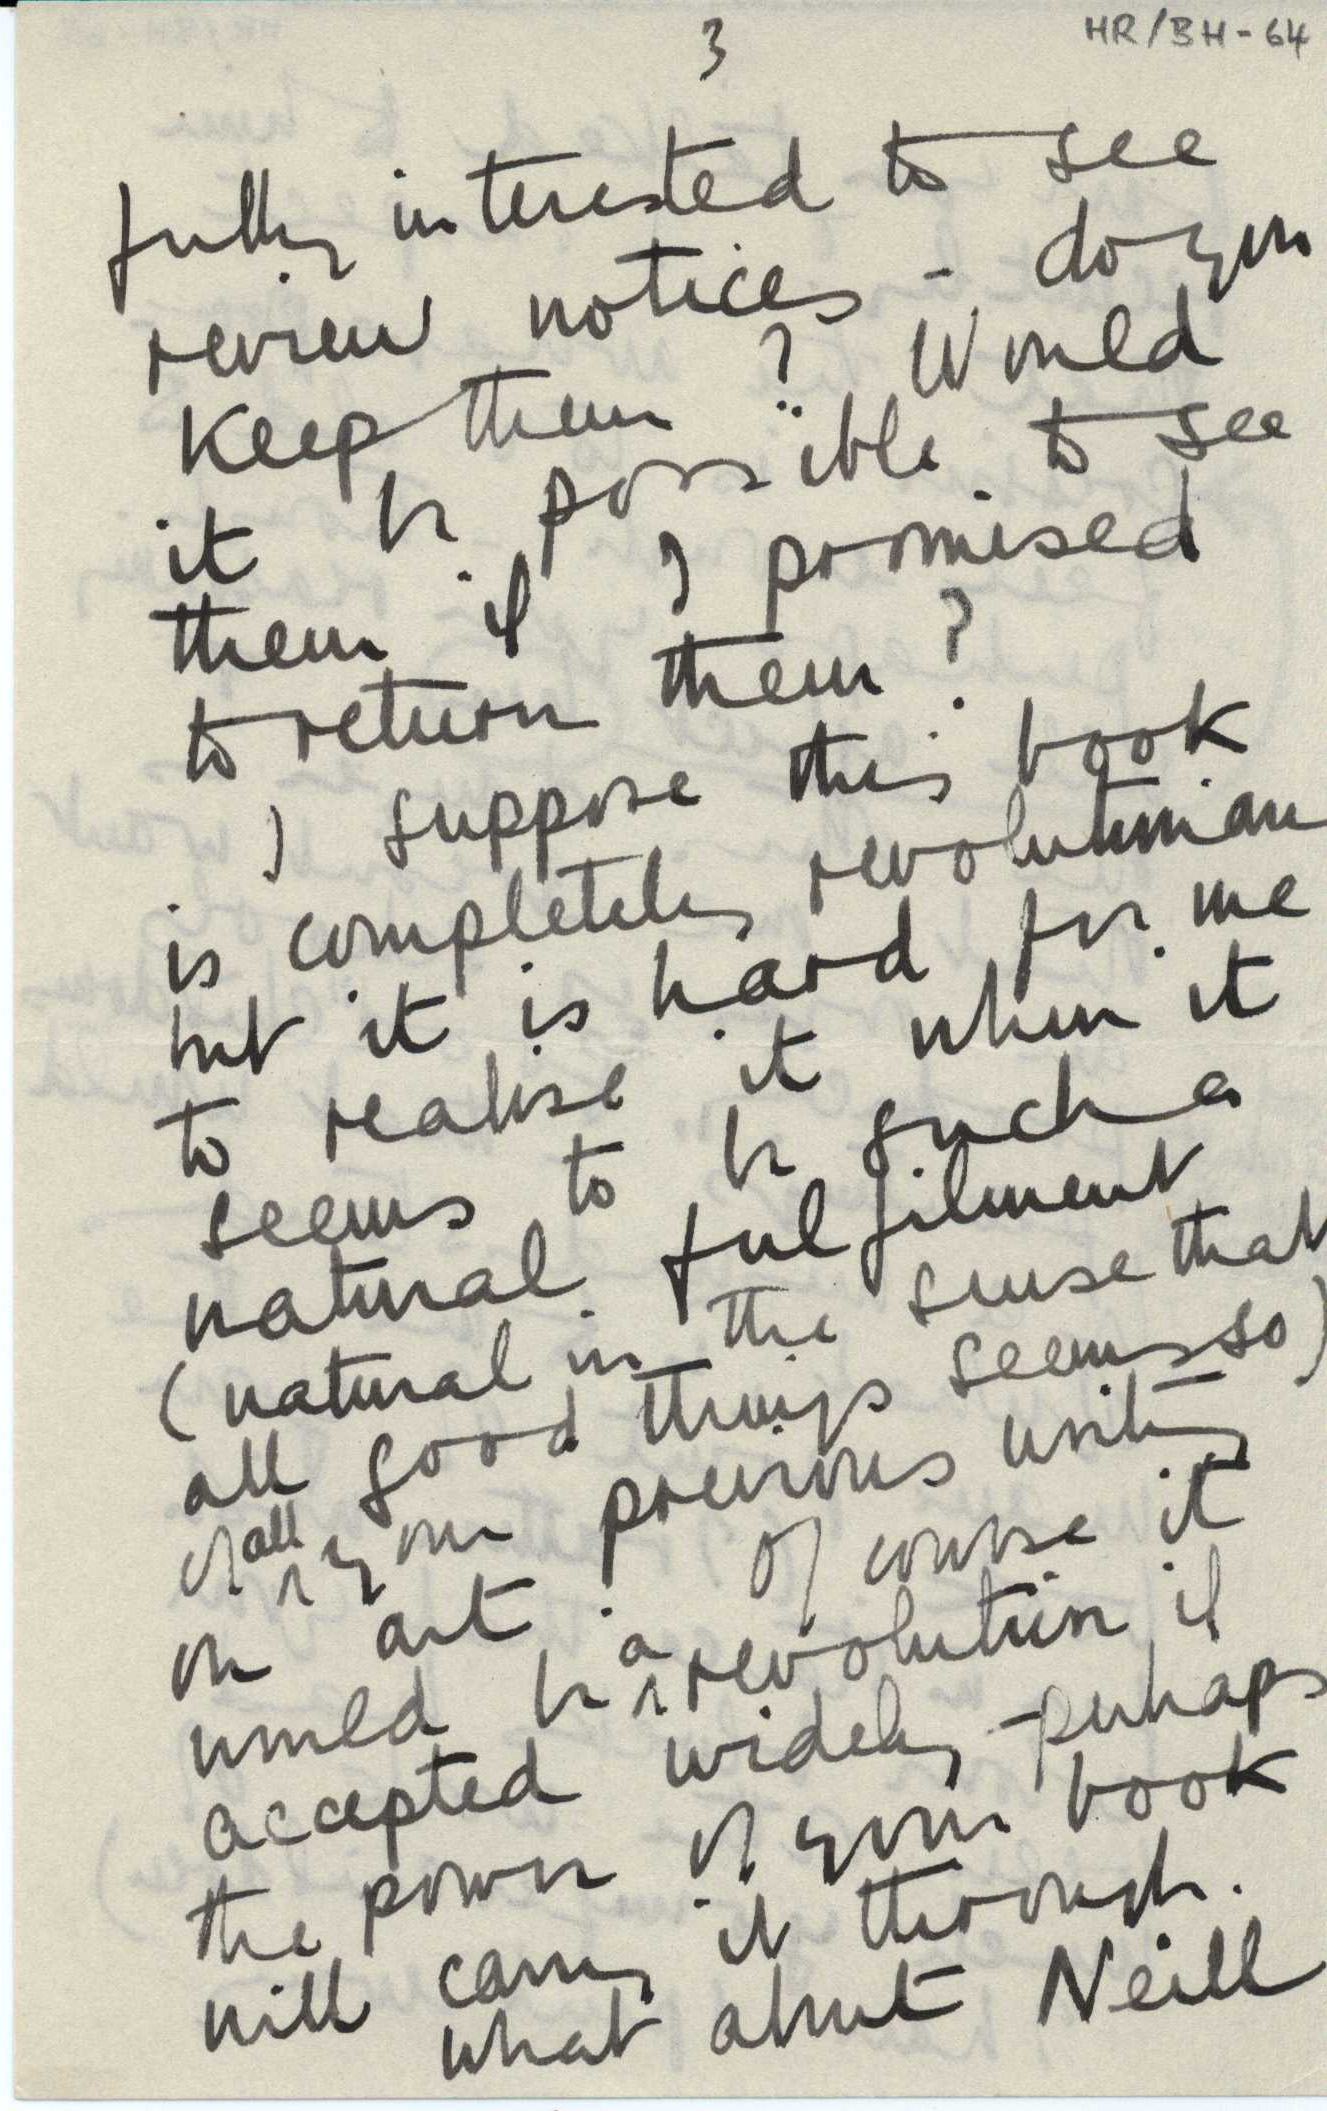 3
HR/BH-64
fully interested to see
review notices - do you
keep them? Would
it be possible to see
them if I promised
to return them?
I suppose this book
is completely revolutionary
but it is hard for me
to realise it when it
seems to be such a
natural fulfilment
(natural in the sense that
all good things seem so)
of all your previous writing
on art. Of course it
would be a revolution if
accepted widely - perhaps
the power of your book
will carry it through.
What about Neill